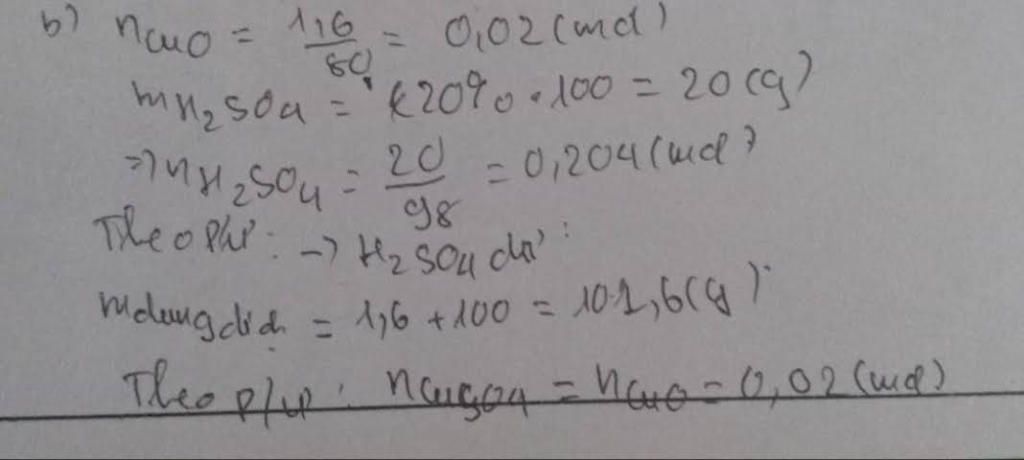 b) nCuO = 1,6/80 = 0,02 (mol)
mH₂SO₄ = 20% . 100 = 20 (g)
=> nH₂SO₄ = 20/98 = 0,204 (mol)
Theo Pt: -> H₂SO₄ dư:
mdung dịch = 1,6 + 100 = 101,6 (g)
Theo p/ư: nCuSO₄ = nCuO = 0,02 (mol)